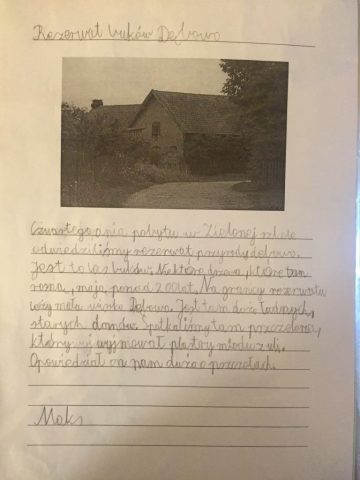 Rezerwat buków Dębowo
Czwartego dnia pobytu w Zielonej szkole
odwiedziliśmy rezerwat przyrody dębowo.
Jest to las buków. Niektóre drzewa, które tam
rosną, mają ponad 200 lat. Na granicy rezerwatu
leży mała wioska Dębowo. Jest tam dużo ładnych,
starych domów. Spotkaliśmy tam pszczelarza,
który wyjmował plastry miodu z uli.
Opowiedział on nam dużo o pszczołach.
Maks